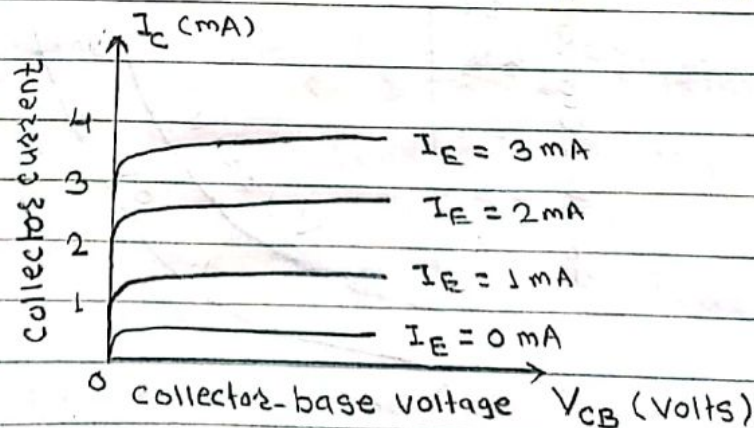 I_C (mA)
Collector current
4
3
2
1
0
I_E = 3 mA
I_E = 2 mA
I_E = 1 mA
I_E = 0 mA
collector-base voltage V_CB (Volts)